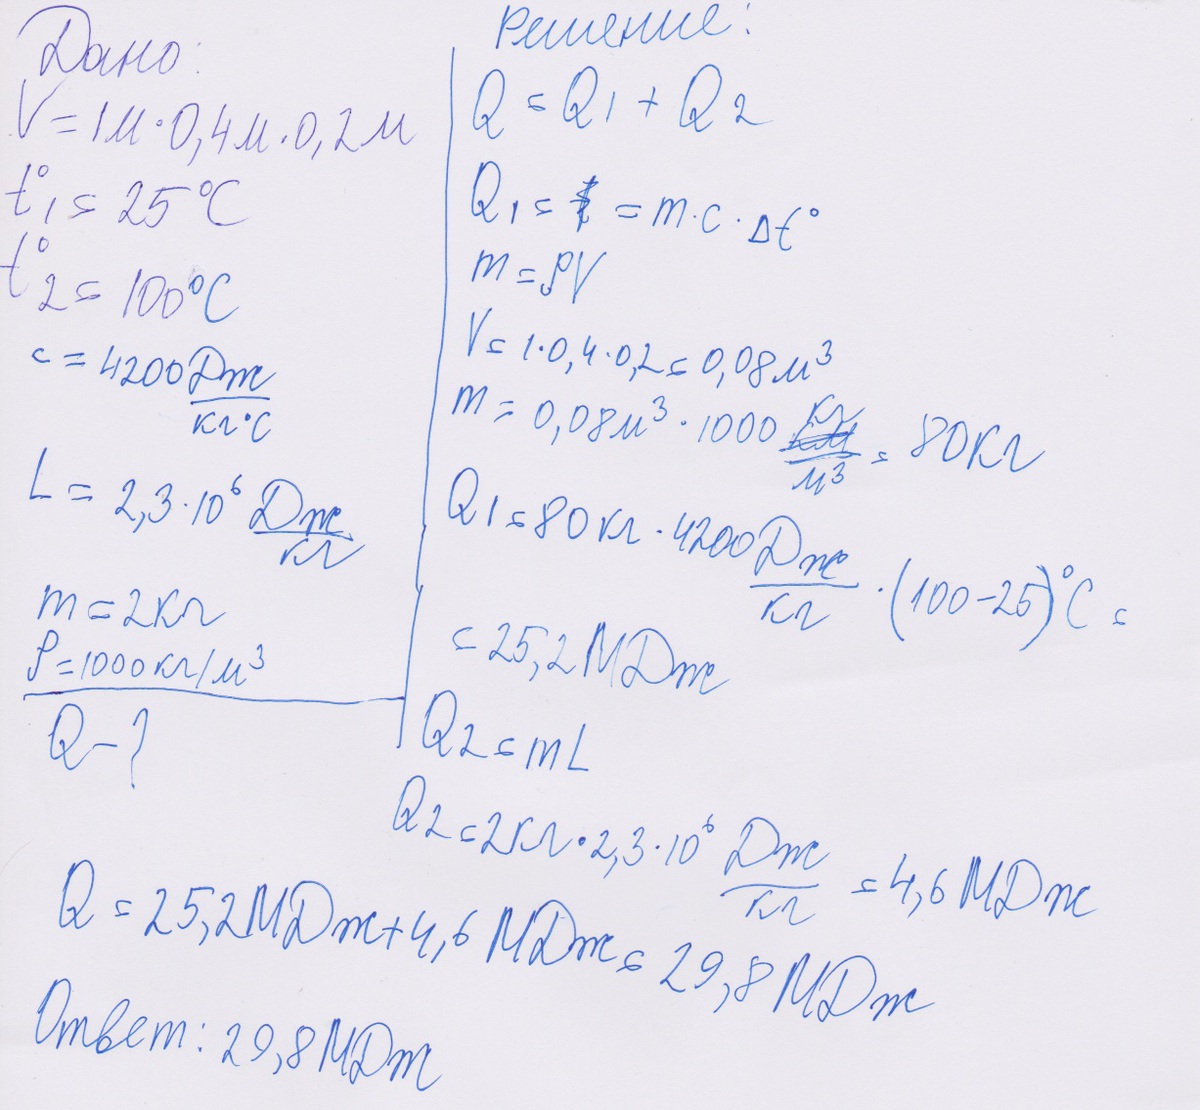 Дано:
V = 1м·0,4м·0,2м
t°1 = 25°C
t°2 = 100°C
c = 4200 Дж/кг°C
L = 2,3·10⁶ Дж/кг
m = 2кг
ρ = 1000кг/м³
Q - ?
Решение:
Q = Q1 + Q2
Q1 = = m·c·Δt°
m = ρV
V = 1·0,4·0,2 = 0,08м³
m = 0,08м³·1000 кг/м³ = 80кг
Q1 = 80кг·4200 Дж/кг·(100-25)°C =
= 25,2МДж
Q2 = mL
Q2 = 2кг·2,3·10⁶ Дж/кг = 4,6МДж
Q = 25,2МДж+4,6МДж = 29,8МДж
Ответ: 29,8МДж